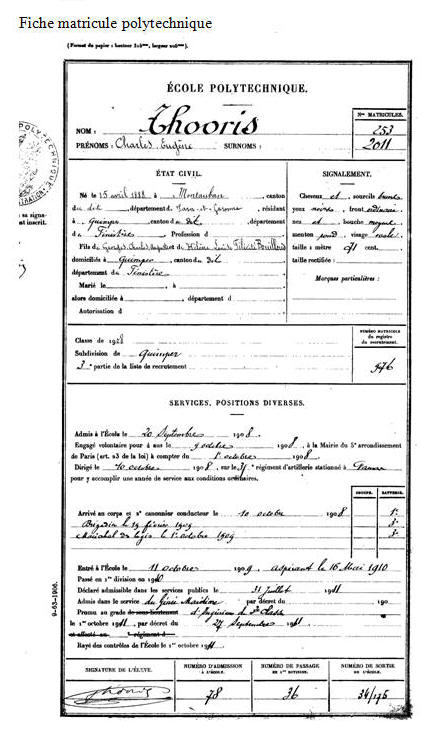 Fiche matricule polytechnique
(Format du papier : hauteur 315mm, largeur 205mm).
ÉCOLE POLYTECHNIQUE.
NOM : Thooris
PRÉNOMS : Charles Eugène SURNOMS :
Nos MATRICULES.
253
2011
POLYTECHNI
sa signa-
nt inscrit.
ÉTAT CIVIL.
Né le 15 avril 1888 à Montauban, canton
du dit, département de Tarn-et-Garonne, résidant
à Quimper canton du dit, département
du Finistère, Profession d
Fils de Georges Charles et de Hélène Félicité
domiciliés à Quimper, canton du dit
département du Finistère
Marié le , à
alors domiciliée à , département d
Autorisation d
SIGNALEMENT.
Cheveux et , sourcils bruns
yeux noirs, front ordinaire
nez et , bouche moyenne
menton rond, visage ovale
taille : 1 mètre 71 cent.
taille rectifiée :
Marques particulières :
Classe de 1908
Subdivision de Quimper
3e partie de la liste de recrutement
NUMÉRO MATRICULE
du registre
du recrutement.
976
SERVICES, POSITIONS DIVERSES.
Admis à l'École le 20 Septembre 1908.
Engagé volontaire pour 4 ans le 9 octobre 1908, à la Mairie du 5e arrondissement
de Paris (art. 23 de la loi) à compter du 1er octobre 1908.
Dirigé le 10 octobre 1908, sur le 35e régiment d'artillerie stationné à Vannes
pour y accomplir une année de service aux conditions ordinaires.
GROUPE. BATTERIE.
Arrivé au corps et 2e canonnier conducteur le 10 octobre 1908 1e
Brigadier le 19 février 1909 3e
Maréchal des logis le 1er octobre 1909 3e
Entré à l'École le 11 octobre 1909. aspirant le 16 Mai 1910
Passé en 1re division en 1910
Déclaré admissible dans les services publics le 31 Juillet 1911
Admis dans le service du Génie Maritime, par décret du 190
Promu au grade de sous-lieutenant d'Ingénieur de 3e Classe
le 1er octobre 1911, par décret du 27 Septembre 1911.
et affecté au e régiment d
Rayé des contrôles de l'École le 1er octobre 1911.
9-63-1906.
SIGNATURE DE L'ÉLÈVE.
Thooris
NUMÉRO D'ADMISSION
À L'ÉCOLE.
78
NUMÉRO DE PASSAGE
EN 1re DIVISION.
36
NUMÉRO DE SORTIE
DE L'ÉCOLE.
34/175